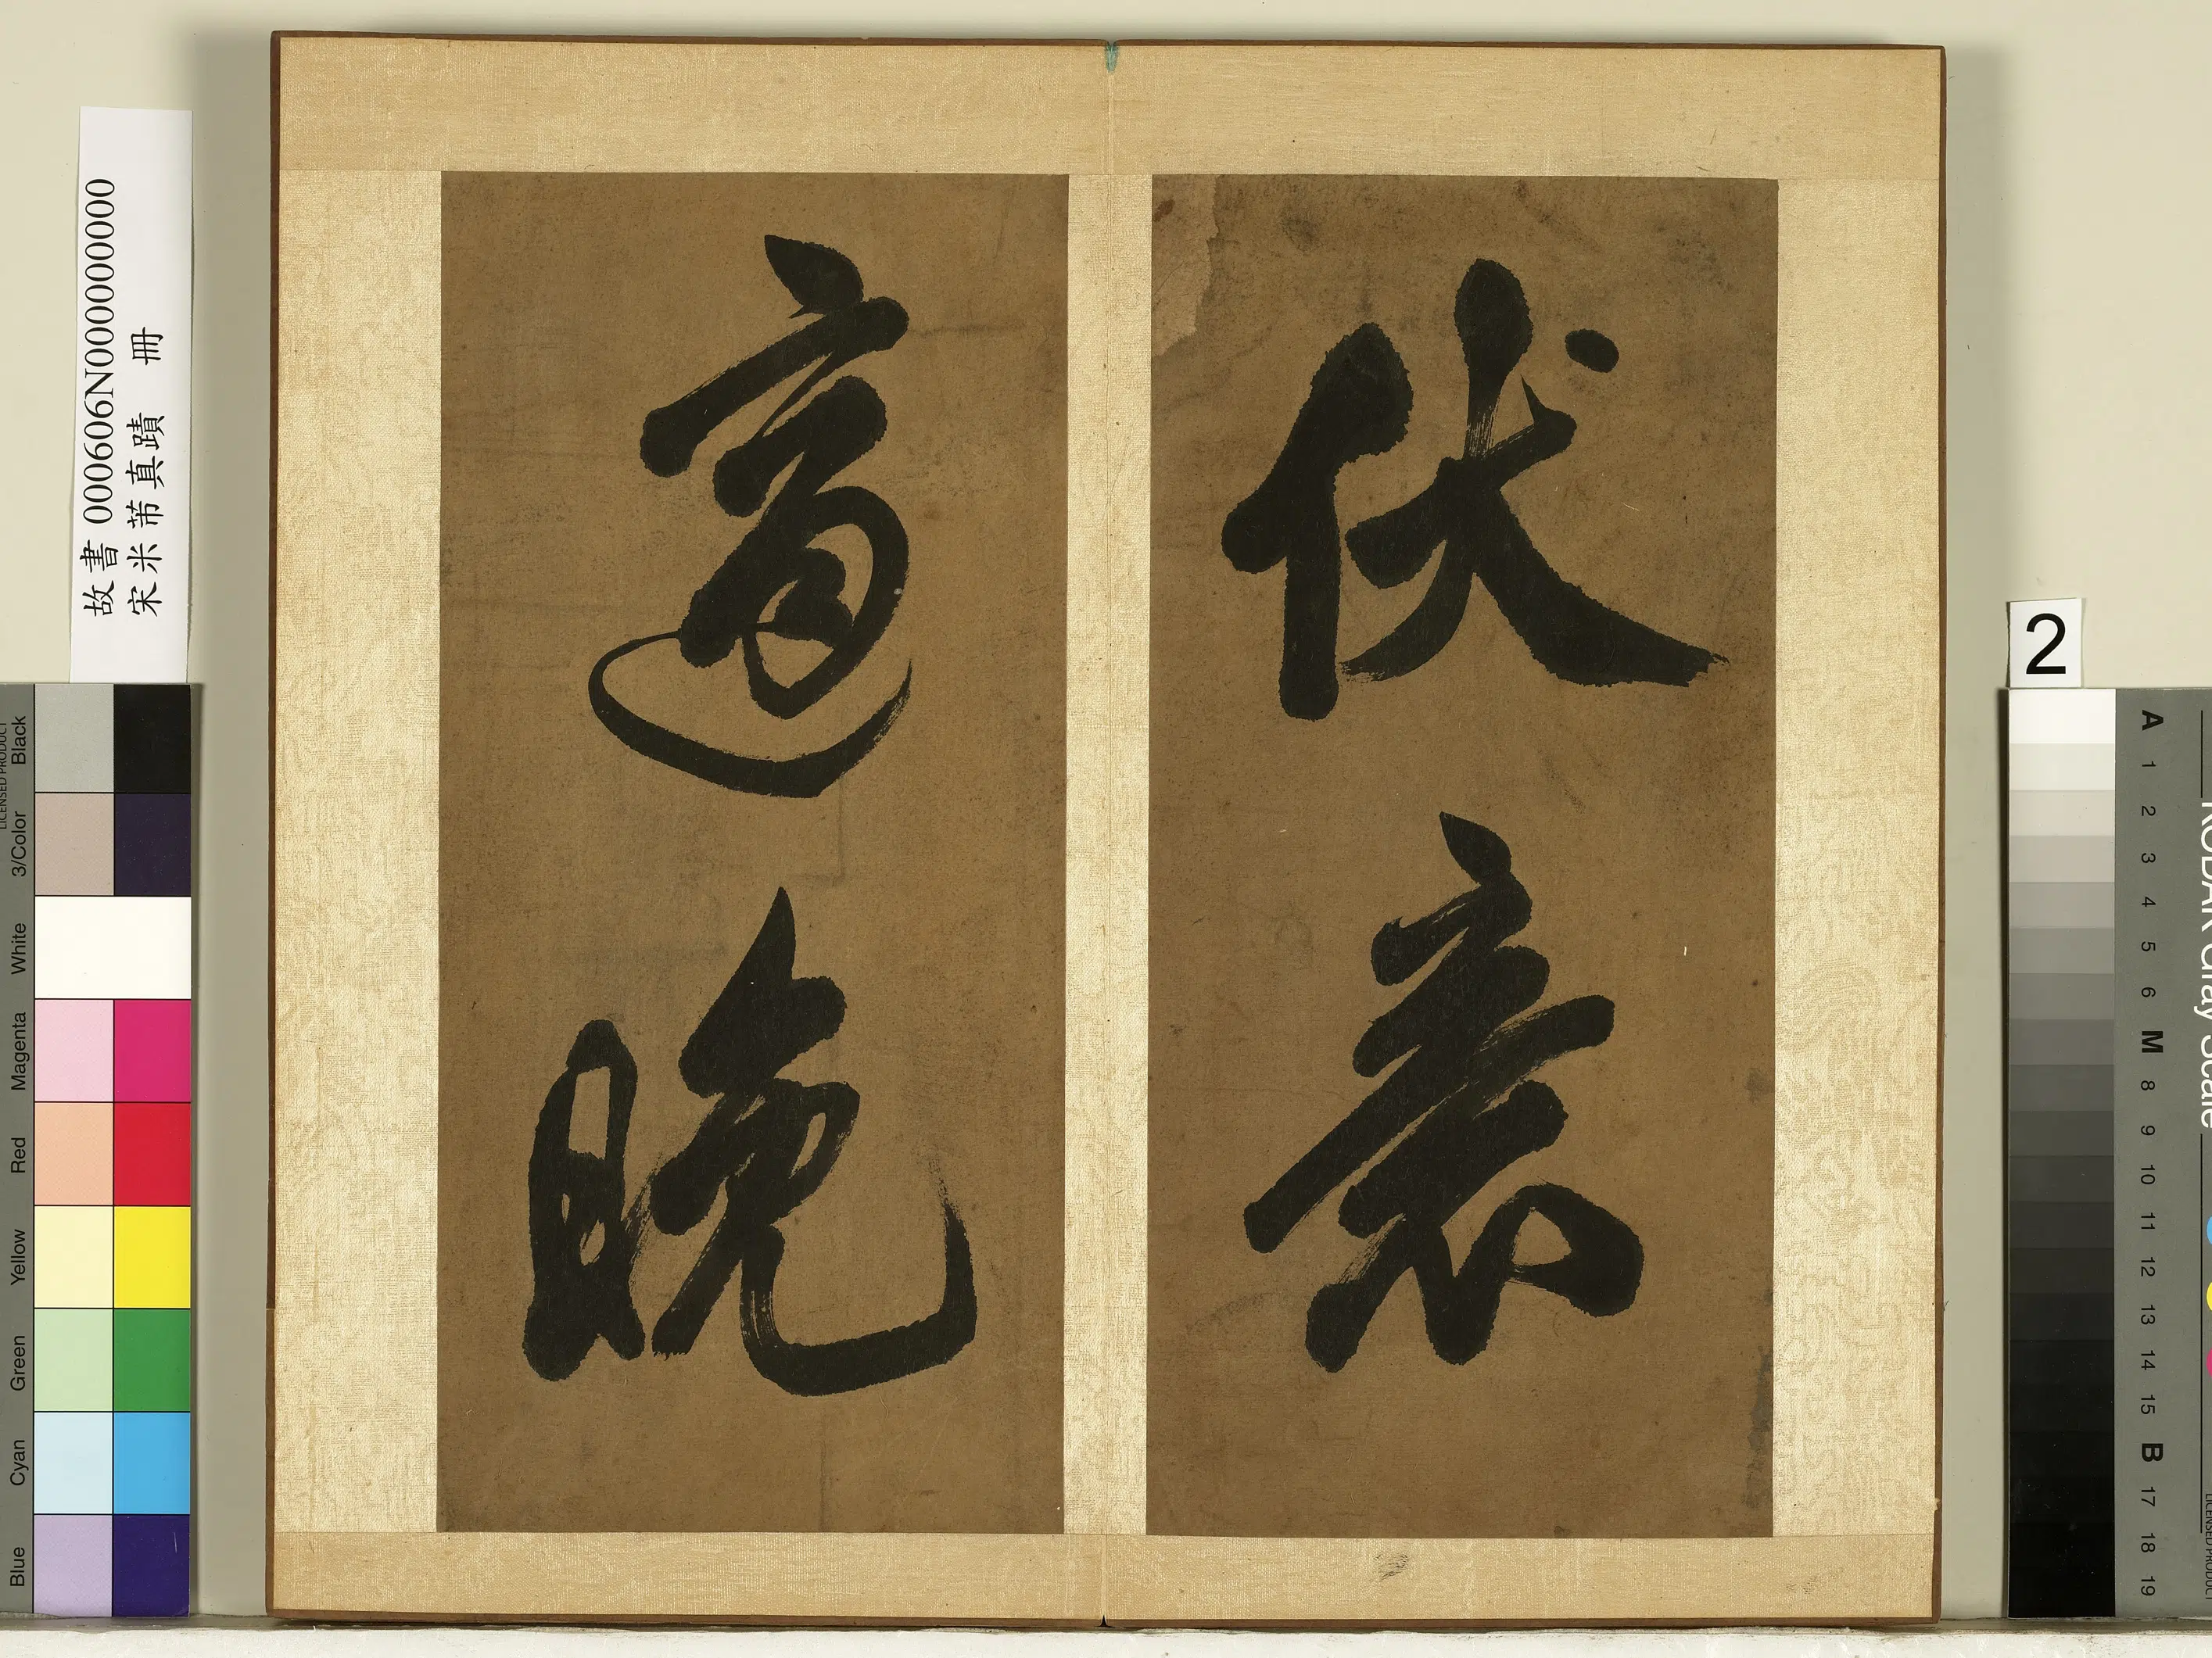 伏衰
適晚
故書 000606N000000000
宋米芾真蹟 冊
2
Black
3/Color
White
Magenta
Red
Yellow
Green
Cyan
Blue
LICENSED PRODUCT
KODAK Gray Scale
A 1 2 3 4 5 6 M 8 9 10 11 12 13 14 15 B 17 18 19
LICENSED PRODUCT